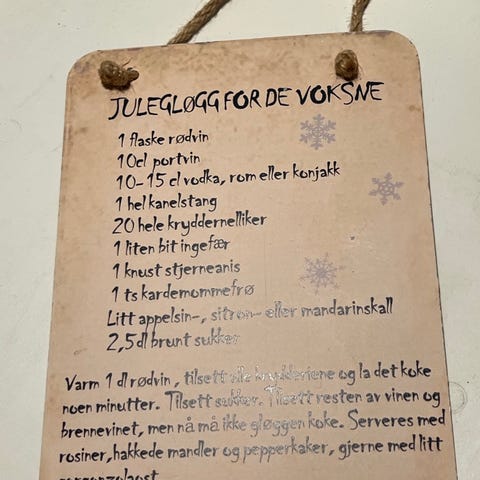 JULEGLØGG FOR DE VOKSNE
1 flaske rødvin
10cl portvin
10-15 cl vodka, rom eller konjakk
1 hel kanelstang
20 hele kryddernelliker
1 liten bit ingefær
1 knust stjerneanis
1 ts kardemommefrø
Litt appelsin-, sitron- eller mandarinskall
2,5dl brunt sukker
Varm 1 dl rødvin, tilsett alle krydderiene og la det koke
noen minutter. Tilsett sukker. Tilsett resten av vinen og
brennevinet, men nå må ikke gløggen koke. Serveres med
rosiner, hakkede mandler og pepperkaker, gjerne med litt